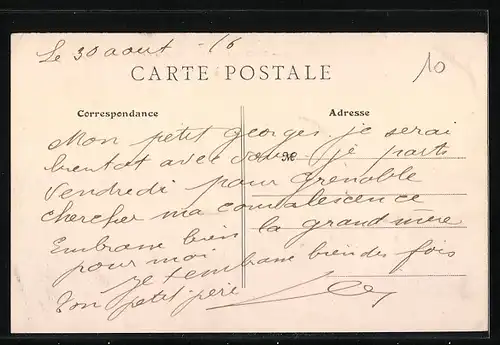 Le 30 aout -16
10
CARTE POSTALE
Correspondance
Adresse
Mon petit georges je serai
bientot avec vous je parts
vendredi pour Grenoble
chercher ma convalescence
Embrasse bien la grand mère
pour moi
je t'embrasse bien des fois
Ton petit père